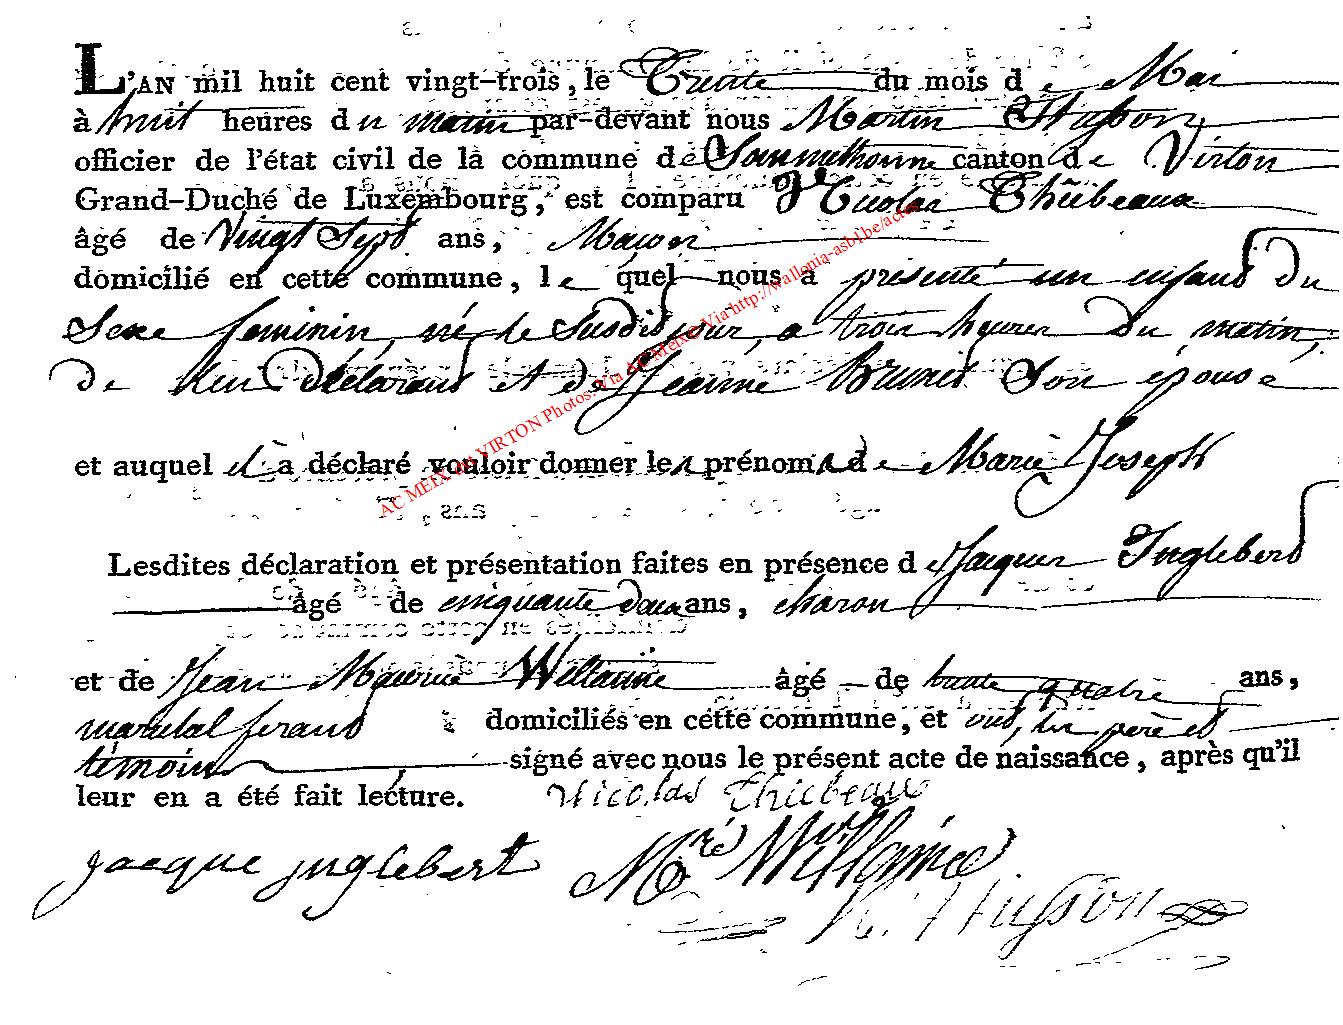 L'AN mil huit cent vingt-trois, le Trente du mois de Mai
à huit heures du matin par-devant nous Martin Husson,
officier de l'état civil de la commune de Sommethonne canton de Virton
Grand-Duché de Luxembourg, est comparu Nicolas Thiibeaux
âgé de Vingt Sept ans, Maçon
domicilié en cette commune, le quel nous a présenté un enfant du
Sexe feminin, né le Susdit jour, a trois heures du matin,
de lui déclarant et de Jeanne Brunet Son épouse
et auquel il a déclaré vouloir donner les prénoms de Marie Joseph
Lesdites déclaration et présentation faites en présence de Jacques Inglebert
âgé de cinquante deux ans, charon
et de Jean Maurice Willaime âgé de trente quatre ans,
marechal ferant domiciliés en cette commune, et ont, les père et
témoins signé avec nous le présent acte de naissance, après qu'il
leur en a été fait lecture. Nicolas Thiebeaux
jacque jnglebert Mce Willaime
Husson
AC MEIX-dt-VIRTON Photos: Via AC Meix - Via http://wallonia-asbl.be/actes